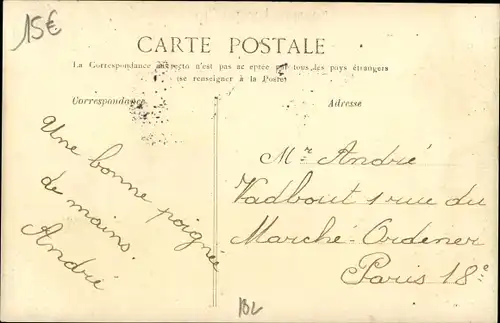 15€
CARTE POSTALE
La Correspondance au recto n'est pas acceptée par tous les pays étrangers
(se renseigner à la Poste)
Correspondance
Adresse
Une bonne poignée
de mains.
André
Mr André
Vadbout 1 rue du
Marché-Ordener
Paris 18e